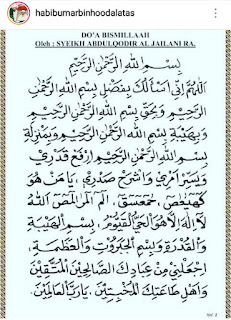 habibumarbinhoodalatas
DO'A BISMILLAAH
Oleh : SYEIKH ABDULQODIR AL JAILANI RA.
بِسْمِ اللهِ الرَّحْمٰنِ الرَّحِيْمِ
اَللّٰهُمَّ اِنِّيْ اَسْأَلُكَ بِفَضْلِ بِسْمِ اللهِ الرَّحْمٰنِ
الرَّحِيْمِ وَبِحَقِّ بِسْمِ اللهِ الرَّحْمٰنِ الرَّحِيْمِ
وَبِهَيْبَةِ بِسْمِ اللهِ الرَّحْمٰنِ الرَّحِيْمِ وَبِمَنْزِلَةِ
بِسْمِ اللهِ الرَّحْمٰنِ الرَّحِيْمِ اِرْفَعْ قَدْرِيْ
وَيَسِّرْ اَمْرِيْ وَاشْرَحْ صَدْرِيْ، يَا مَنْ هُوَ
كٓهٰيٰعٓصٓ، حٰمٓعٓسٓقٓ، الٓمٓ الٓمٓرٰ الٓمٓصٓ اَللهُ
لَا اِلٰهَ اِلَّا هُوَ الْحَيُّ الْقَيُّوْمُ، بِسِرِّ الْهَيْبَةِ
وَالْقُدْرَةِ وَبِسِرِّ الْجَبَرُوْتِ وَالْعَظَمَةِ،
اِجْعَلْنِيْ مِنْ عِبَادِكَ الصَّالِحِيْنَ الْمُتَّقِيْنَ
وَاَهْلِ طَاعَتِكَ الْمُخْبِتِيْنَ، يَا رَبَّ الْعَالَمِيْنَ.